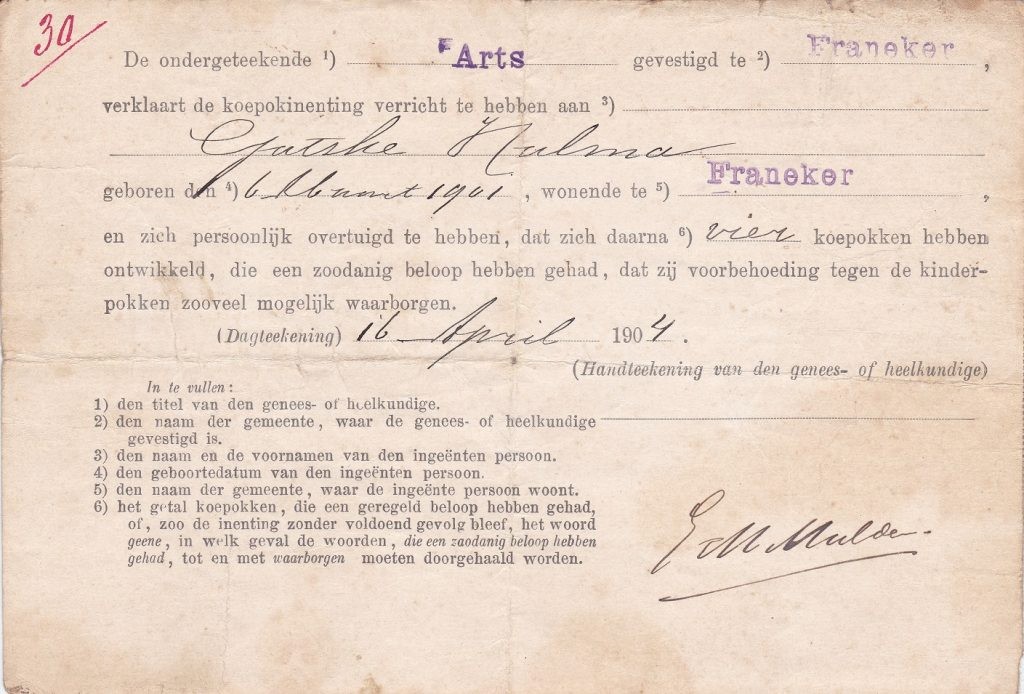 30
De ondergeteekende 1) Arts gevestigd te 2) Franeker,
verklaart de koepokinenting verricht te hebben aan 3)
Gatske Hulma
geboren den 4) 6 Maart 1901, wonende te 5) Franeker,
en zich persoonlijk overtuigd te hebben, dat zich daarna 6) vier koepokken hebben
ontwikkeld, die een zoodanig beloop hebben gehad, dat zij voorbehoeding tegen de kinder-
pokken zooveel mogelijk waarborgen.
(Dagteekening) 16 April 1904.
(Handteekening van den genees- of heelkundige)
In te vullen:
1) den titel van den genees- of heelkundige.
2) den naam der gemeente, waar de genees- of heelkundige
gevestigd is.
3) den naam en de voornamen van den ingeënten persoon.
4) den geboortedatum van den ingeënten persoon.
5) den naam der gemeente, waar de ingeënte persoon woont.
6) het getal koepokken, die een geregeld beloop hebben gehad,
of, zoo de inenting zonder voldoend gevolg bleef, het woord
geene, in welk geval de woorden, die een zaodanig beloop hebben
gehad, tot en met waarborgen moeten doorgehaald worden.
Mulder